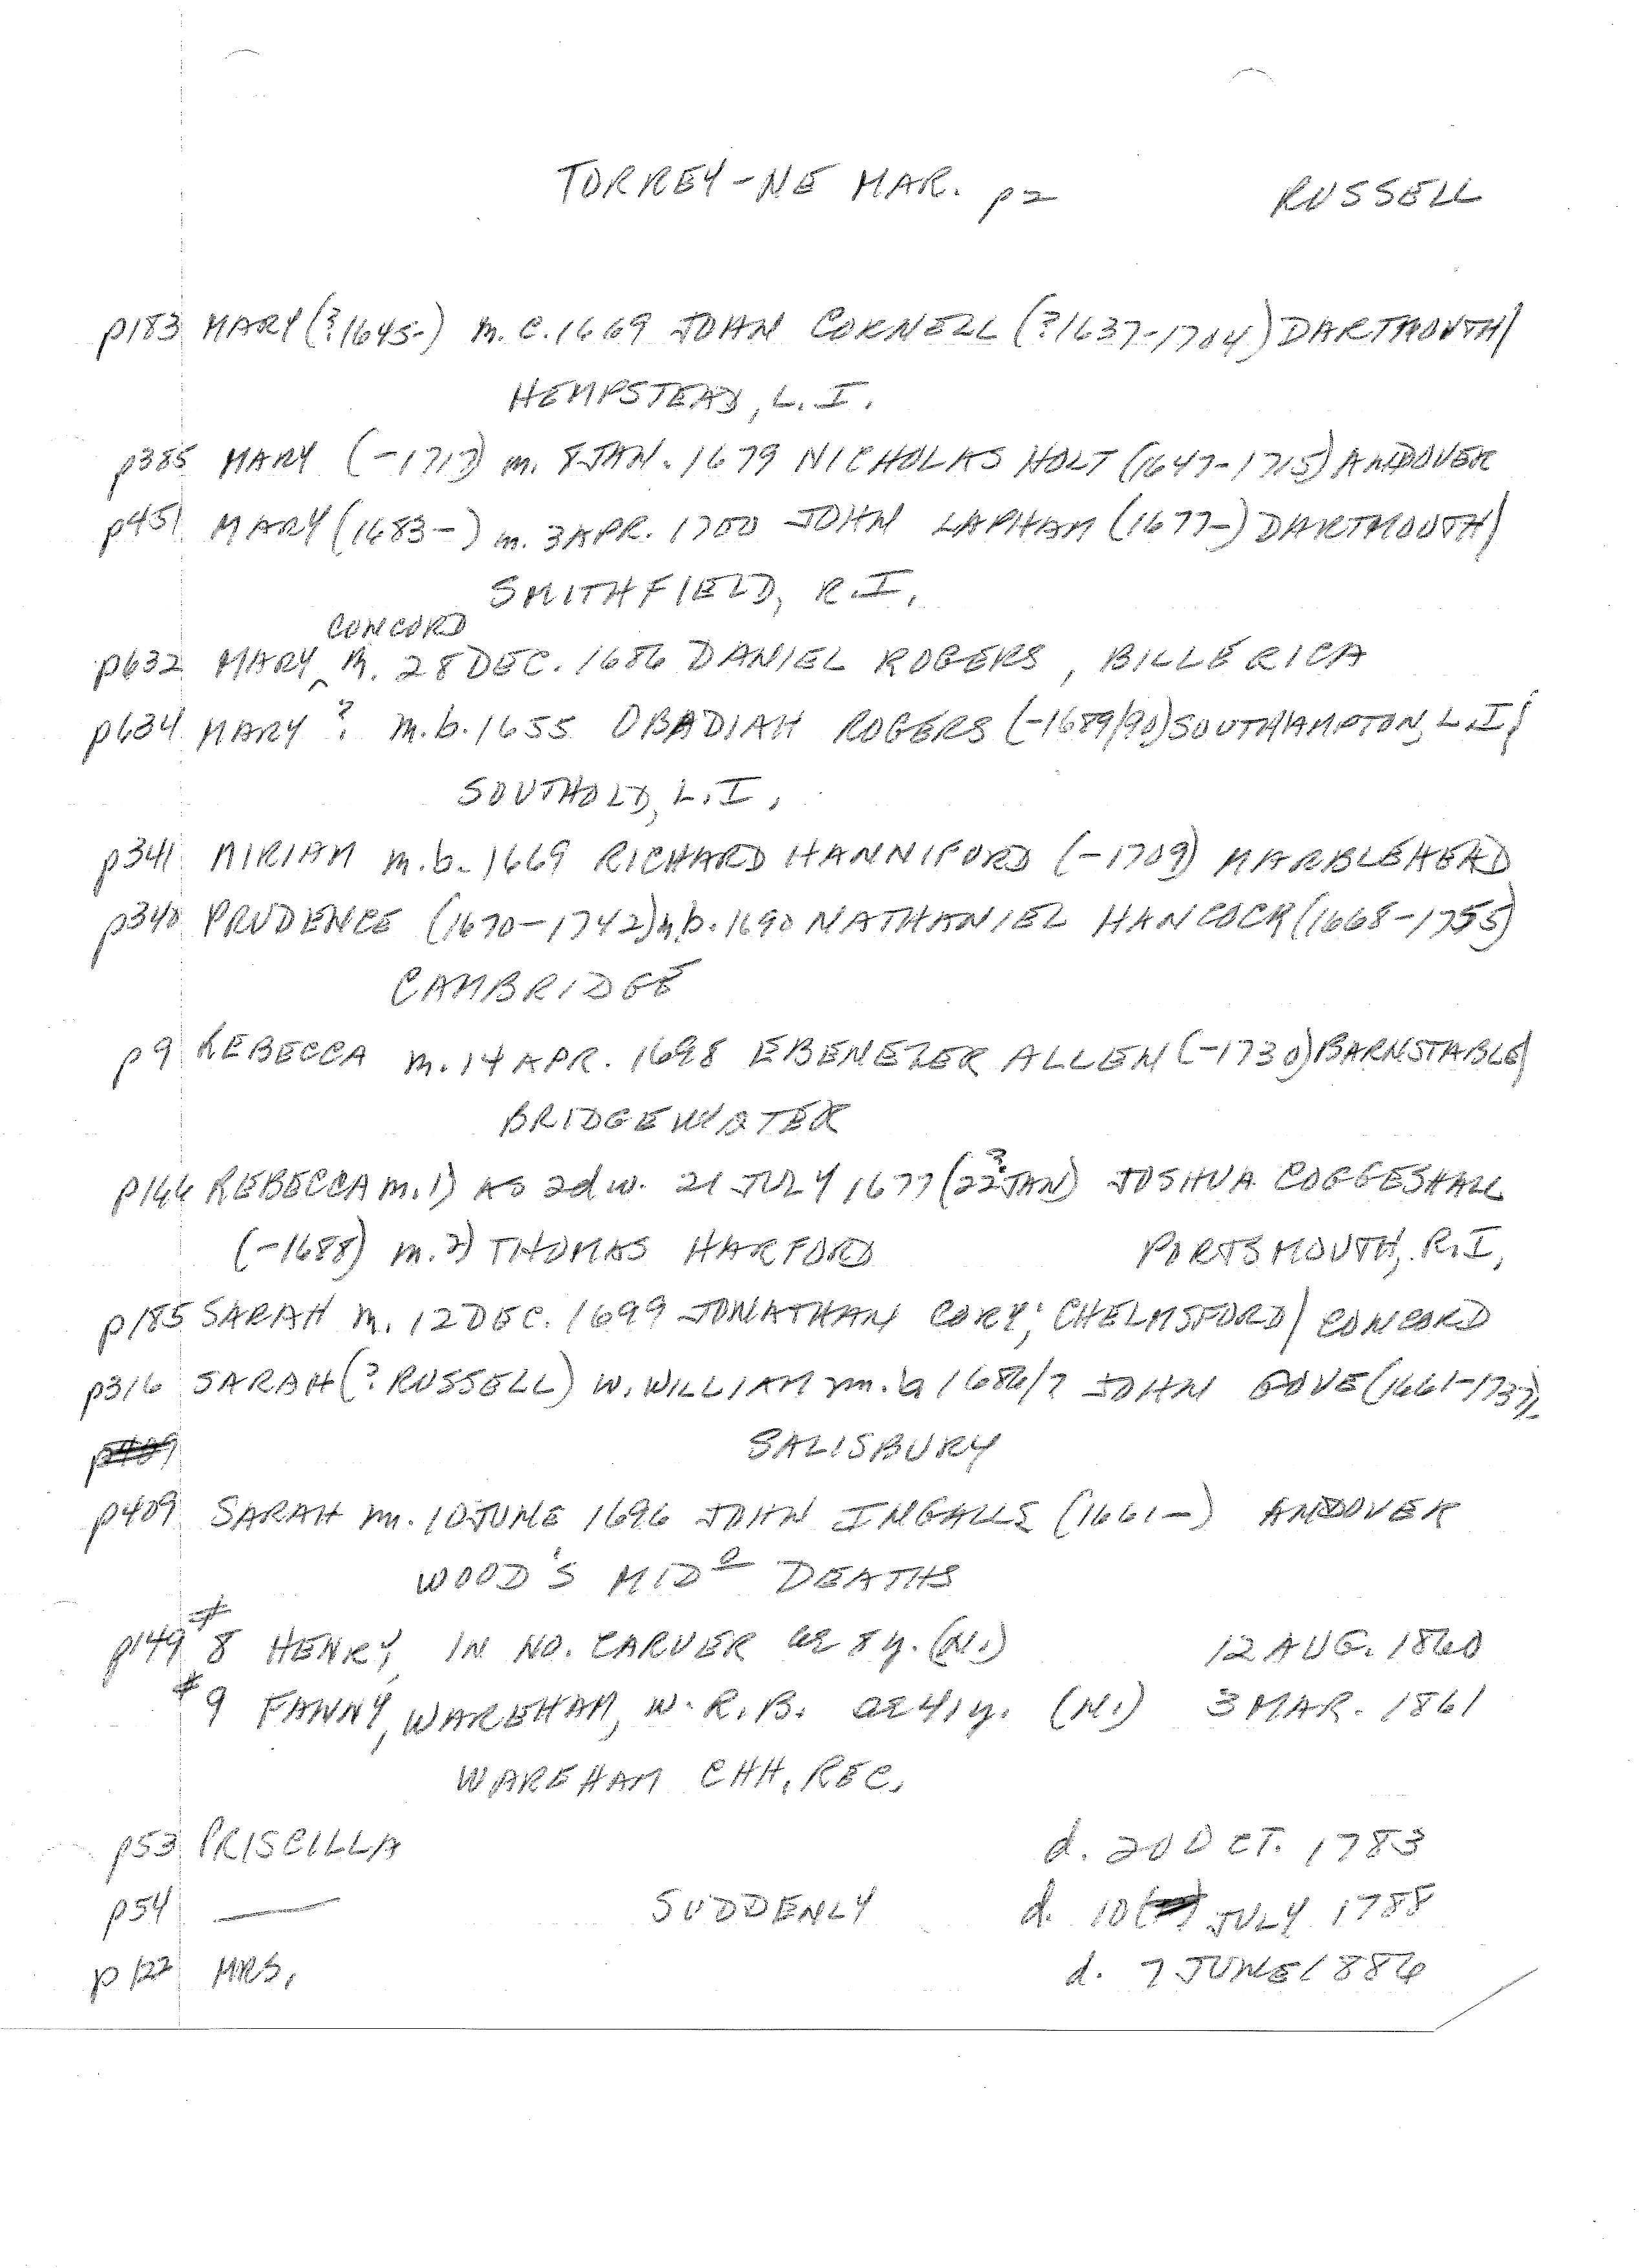 TORREY-NE MAR. p2 RUSSELL
p183 MARY (?1645-) m. c. 1669 JOHN CORNELL (?1637-1704) DARTMOUTH/
HEMPSTEAD, L.I.
p385 MARY (-1717) m. 8 JAN. 1679 NICHOLAS HOLT (1647-1715) ANDOVER
p451 MARY (1683-) m. 3 APR. 1700 JOHN LAPHAM (1677-) DARTMOUTH/
SMITHFIELD, R.I.
CONCORD
p632 MARY ^ m. 28 DEC. 1686 DANIEL ROGERS, BILLERICA
p634 MARY ? m.b. 1655 OBADIAH ROGERS (-1689/90) SOUTHAMPTON, L.I/
SOUTHOLD, L.I.
p341 MIRIAM m.b. 1669 RICHARD HANNIFORD (-1709) MARBLEHEAD
p340 PRUDENCE (1670-1742) m.b. 1690 NATHANIEL HANCOCK (1668-1755)
CAMBRIDGE
p9 REBECCA m. 14 APR. 1698 EBENEZER ALLEN (-1730) BARNSTABLE/
BRIDGEWATER
p166 REBECCA m. 1) AS 2d w. 21 JULY 1677 (22? JAN) JOSHUA COGGESHALL
(-1688) m. 2) THOMAS HARFORD PORTSMOUTH, R.I.
p185 SARAH m. 12 DEC. 1699 JONATHAN CORY; CHELMSFORD/CONCORD
p316 SARAH (?RUSSELL) W. WILLIAM m. b 1686/7 JOHN GOVE (1661-1737),
p409 SALISBURY
p409 SARAH m. 10 JUNE 1696 JOHN INGALLS (1661-) ANDOVER
WOOD'S MIDO DEATHS
p149 #8 HENRY, IN NO. CARVER ae 8y. (N.) 12 AUG. 1860
#9 FANNY, WAREHAM, W. R.B. ae 41y. (N.) 3 MAR. 1861
WAREHAM CHH. REC.
p53 PRISCILLA d. 20 OCT. 1783
p54 — SUDDENLY d. 10 JULY 1788
p122 MRS. d. 7 JUNE 1886